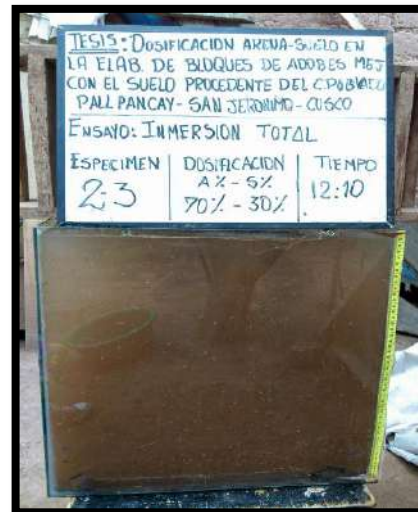 TESIS: DOSIFICACION ARENA-SUELO EN
LA ELAB. DE BLOQUES DE ADOBES MEJ
CON EL SUELO PROCEDENTE DEL C.POBLADO
PALLPANCAY - SAN JERONIMO - CUSCO
ENSAYO: INMERSION TOTAL
ESPECIMEN
2-3
DOSIFICACION
A% - S%
70% - 30%
TIEMPO
12:10